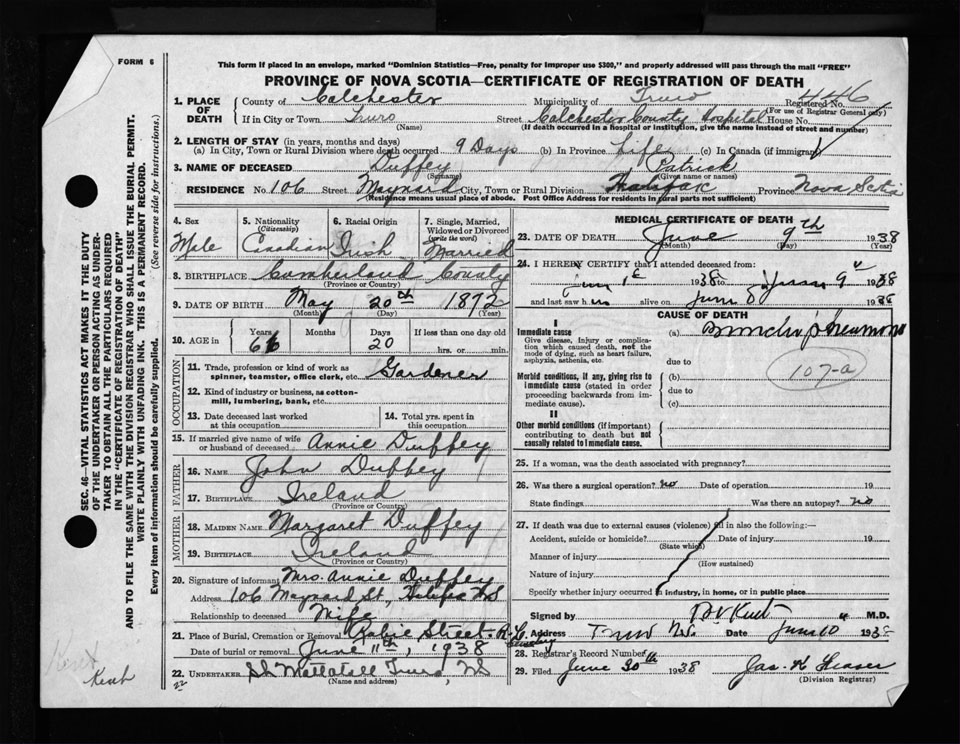 FORM 6
This form if placed in an envelope, marked "Dominion Statistics—Free, penalty for improper use $300," and properly addressed will pass through the mail "FREE"
PROVINCE OF NOVA SCOTIA—CERTIFICATE OF REGISTRATION OF DEATH
446
1. PLACE OF DEATH
County of Colchester Municipality of Truro Registered No.
(For use of Registrar General only)
If in City or Town Truro Street Colchester County Hospital House No.
(Name) (If death occurred in a hospital or institution, give the name instead of street and number)
2. LENGTH OF STAY (in years, months and days)
(a) In City, Town or Rural Division where death occurred 9 Days (b) In Province Life (c) In Canada (if immigrant)
3. NAME OF DECEASED Duffey Patrick
(Surname) (Given or names)
RESIDENCE No. 106 Street Maynard City, Town or Rural Division Halifax Province Nova Scotia
(Residence means usual place of abode. Post Office Address for residents in rural parts not sufficient)
4. Sex Male
5. Nationality (Citizenship) Canadian
6. Racial Origin Irish
7. Single, Married, Widowed or Divorced (write the word) Married
8. BIRTHPLACE Cumberland County
(Province or Country)
9. DATE OF BIRTH May 20th 1872
(Month) (Day) (Year)
10. AGE in
Years Months Days If less than one day old
66 20 hrs. or min.
OCCUPATION
11. Trade, profession or kind of work as spinner, teamster, office clerk, etc. Gardener
12. Kind of industry or business, as cotton-mill, lumbering, bank, etc.
13. Date deceased last worked at this occupation
14. Total yrs. spent in this occupation
15. If married give name of wife or husband of deceased Annie Duffey
FATHER
16. NAME John Duffey
17. BIRTHPLACE Ireland
(Province or Country)
MOTHER
18. MAIDEN NAME Margaret Duffey
19. BIRTHPLACE Ireland
(Province or Country)
20. Signature of informant Mrs. Annie Duffey
Address 106 Maynard St., Halifax NS
Relationship to deceased Wife
21. Place of Burial, Cremation or Removal Robie Street R.C. Cemetery
Date of burial or removal June 11th, 1938
22. UNDERTAKER Truro, NS
(Name and address)
MEDICAL CERTIFICATE OF DEATH
23. DATE OF DEATH June 9th 1938
(Month) (Day) (Year)
24. I HEREBY CERTIFY that I attended deceased from:
June 1 1938 to June 9 1938
and last saw him alive on June 8 1938
CAUSE OF DEATH
I
Immediate cause
Give disease, injury or complication which caused death, not the mode of dying, such as heart failure, asphyxia, asthenia, etc.
(a) Broncho pneumonia
due to
Morbid conditions, if any, giving rise to immediate cause (stated in order proceeding backwards from immediate cause).
(b)
107-a
due to
(c)
II
Other morbid conditions (if important) contributing to death but not causally related to immediate cause.
25. If a woman, was the death associated with pregnancy?
26. Was there a surgical operation? no Date of operation 19
State findings Was there an autopsy? no
27. If death was due to external causes (violence) fill in also the following:—
Accident, suicide or homicide? Date of injury 19
(State which)
Manner of injury
(How sustained)
Nature of injury
Specify whether injury occurred in industry, in home, or in public place
Signed by Kent M.D.
Address Truro N.S. Date June 10 1938
28. Registrar's Record Number
29. Filed June 30th 1938 Jas. K Fraser
(Division Registrar)
SEC. 46—VITAL STATISTICS ACT MAKES IT THE DUTY
OF THE UNDERTAKER OR PERSON ACTING AS UNDER-
TAKER TO OBTAIN ALL THE PARTICULARS REQUIRED
IN THE "CERTIFICATE OF REGISTRATION OF DEATH"
AND TO FILE THE SAME WITH THE DIVISION REGISTRAR WHO SHALL ISSUE THE BURIAL PERMIT.
WRITE PLAINLY WITH UNFADING INK. THIS IS A PERMANENT RECORD.
Every item of Information should be carefully supplied. (See reverse side for instructions.)
Kent
Kent
22